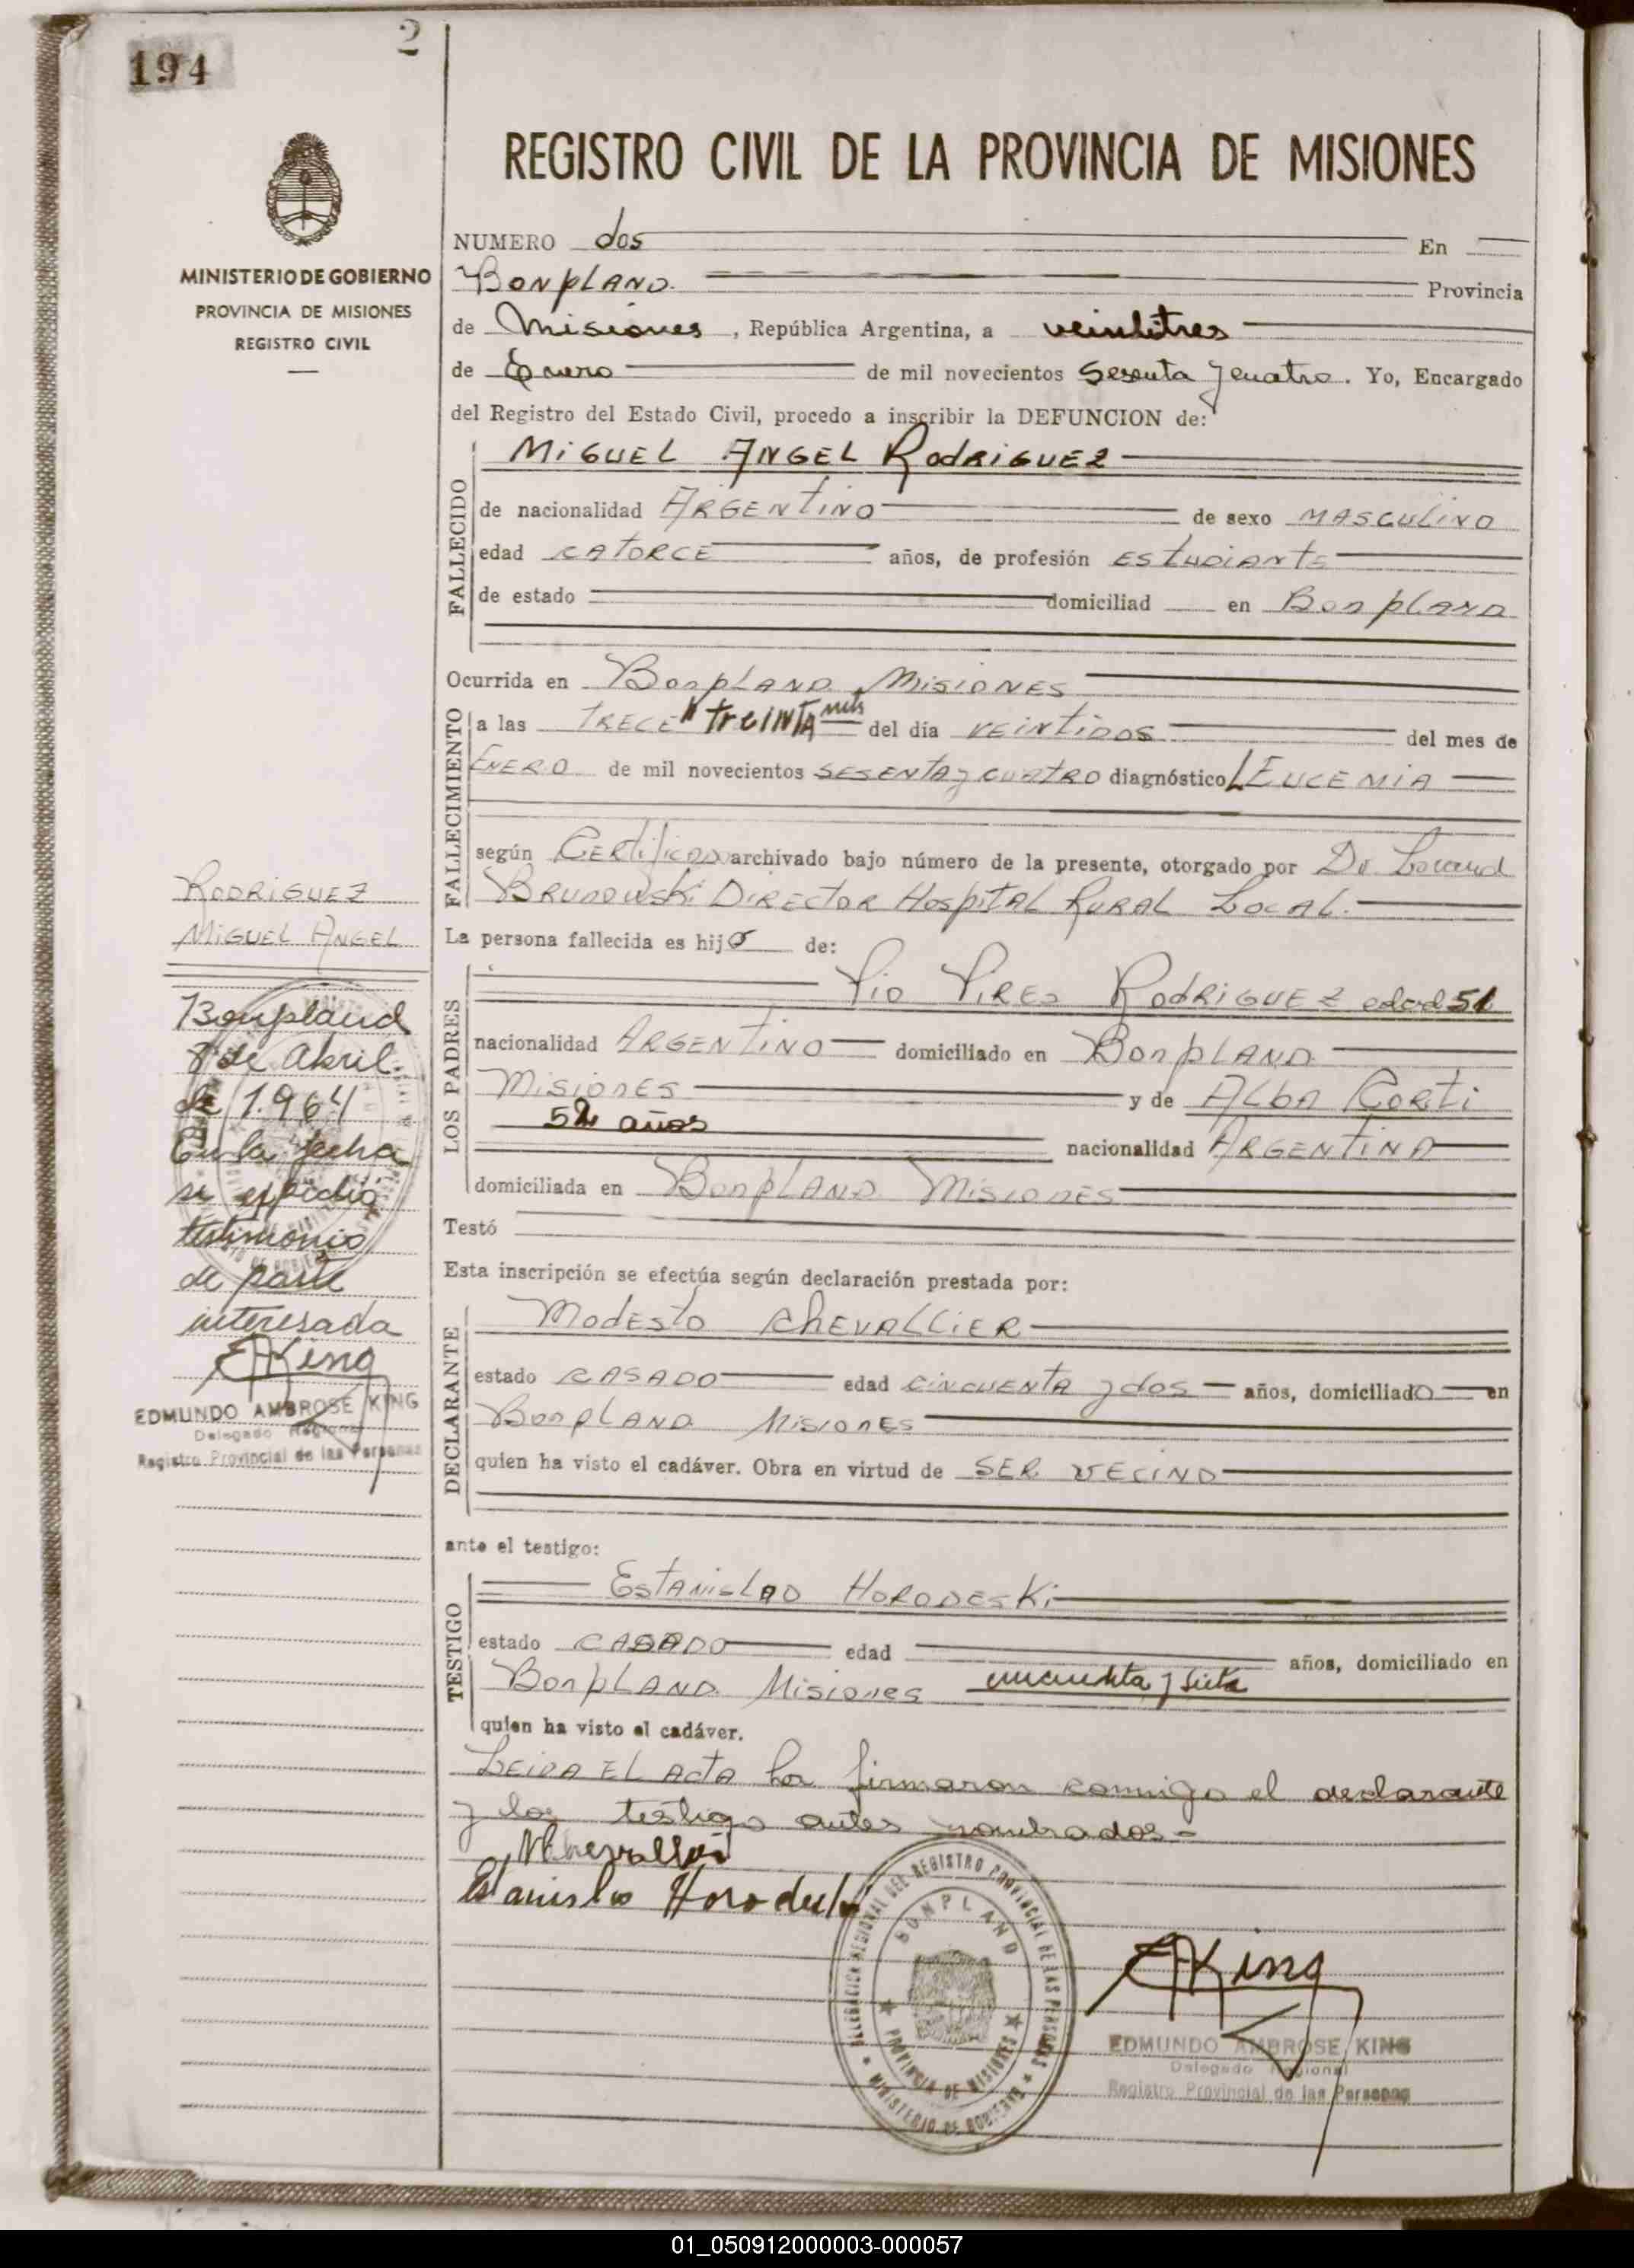 194
2
MINISTERIO DE GOBIERNO
PROVINCIA DE MISIONES
REGISTRO CIVIL
REGISTRO CIVIL DE LA PROVINCIA DE MISIONES
NUMERO dos En
BONPLAND.
Provincia
de Misiones, República Argentina, a veintitres
de Enero de mil novecientos Sesenta y cuatro. Yo, Encargado
del Registro del Estado Civil, procedo a inscribir la DEFUNCION de:
MIGUEL ANGEL RODRIGUEZ
FALLECIDO
de nacionalidad ARGENTINO de sexo MASCULINO
edad CATORCE años, de profesión ESTUDIANTE
de estado domiciliad en BONPLAND
Ocurrida en BONPLAND MISIONES
FALLECIMIENTO
a las TRECE TREINTA mts del día VEINTIDOS del mes de
ENERO de mil novecientos SESENTA y CUATRO diagnóstico LEUCEMIA
según Certificado archivado bajo número de la presente, otorgado por Dr
BRUNOWSKI DIRECTOR HOSPITAL RURAL LOCAL.
La persona fallecida es hijo de:
LOS PADRES
PIO PIRES RODRIGUEZ edad 51
nacionalidad ARGENTINO domiciliado en BONPLAND
MISIONES y de ALBA CORTI
52 años nacionalidad ARGENTINA
domiciliada en BONPLAND MISIONES
Testó
Esta inscripción se efectúa según declaración prestada por:
DECLARANTE
MODESTO CHEVALLIER
estado CASADO edad CINCUENTA y dos años, domiciliado en
BONPLAND MISIONES
quien ha visto el cadáver. Obra en virtud de SER VECINO
ante el testigo:
TESTIGO
ESTANISLAO HORODESKI
estado CASADO edad años, domiciliado en
BONPLAND MISIONES cincuenta y siete
quien ha visto el cadáver.
LEIDA EL ACTA la firmaron conmigo el declarante
y los testigo antes nombrados-
MChevallier
Estanislao
DELEGACION REGIONAL DEL REGISTRO PROVINCIAL DE LAS PERSONAS
MINISTERIO DE GOBIERNO
BONPLAND
PROVINCIA DE MISIONES
EAKing
EDMUNDO AMBROSE KING
Delegado Regional
Registro Provincial de las Personas
RODRIGUEZ
MIGUEL ANGEL
Bonpland
8 de abril
de 1.964
En la fecha
se expidió
testimonio
de parte
interesada
EAKing
EDMUNDO AMBROSE KING
Delegado Regional
Registro Provincial de las Personas
01_050912000003-000057